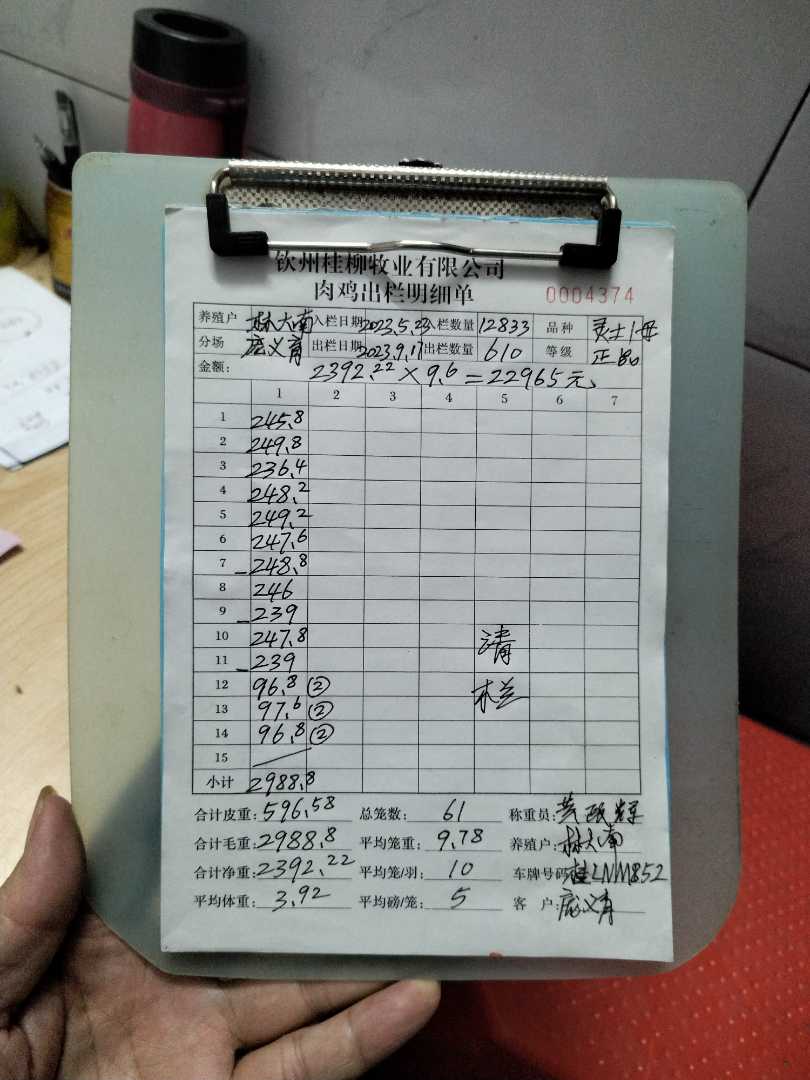 钦州桂柳牧业有限公司
肉鸡出栏明细单 0004374
养殖户 林大南 入栏日期 2023.5.23 入栏数量 12833 品种
分场 庞义育 出栏日期 2023.9.17 出栏数量 610 等级 正品
金额: 2392.22×9.6=22965元
1 2 3 4 5 6 7
1 245.8
2 249.8
3 236.4
4 248.2
5 249.2
6 247.6
7 248.8
8 246
9 239
10 247.8 清
11 239
12 96.8 ② 栏
13 97.6 ②
14 96.8 ②
15
小计 2988.8
合计皮重: 596.58 总笼数: 61 称重员:
合计毛重: 2988.8 平均笼重: 9.78 养殖户: 林大南
合计净重: 2392.22 平均笼/羽: 10 车牌号码: 桂LNM852
平均体重: 3.92 平均磅/笼: 5 客户: 庞义育